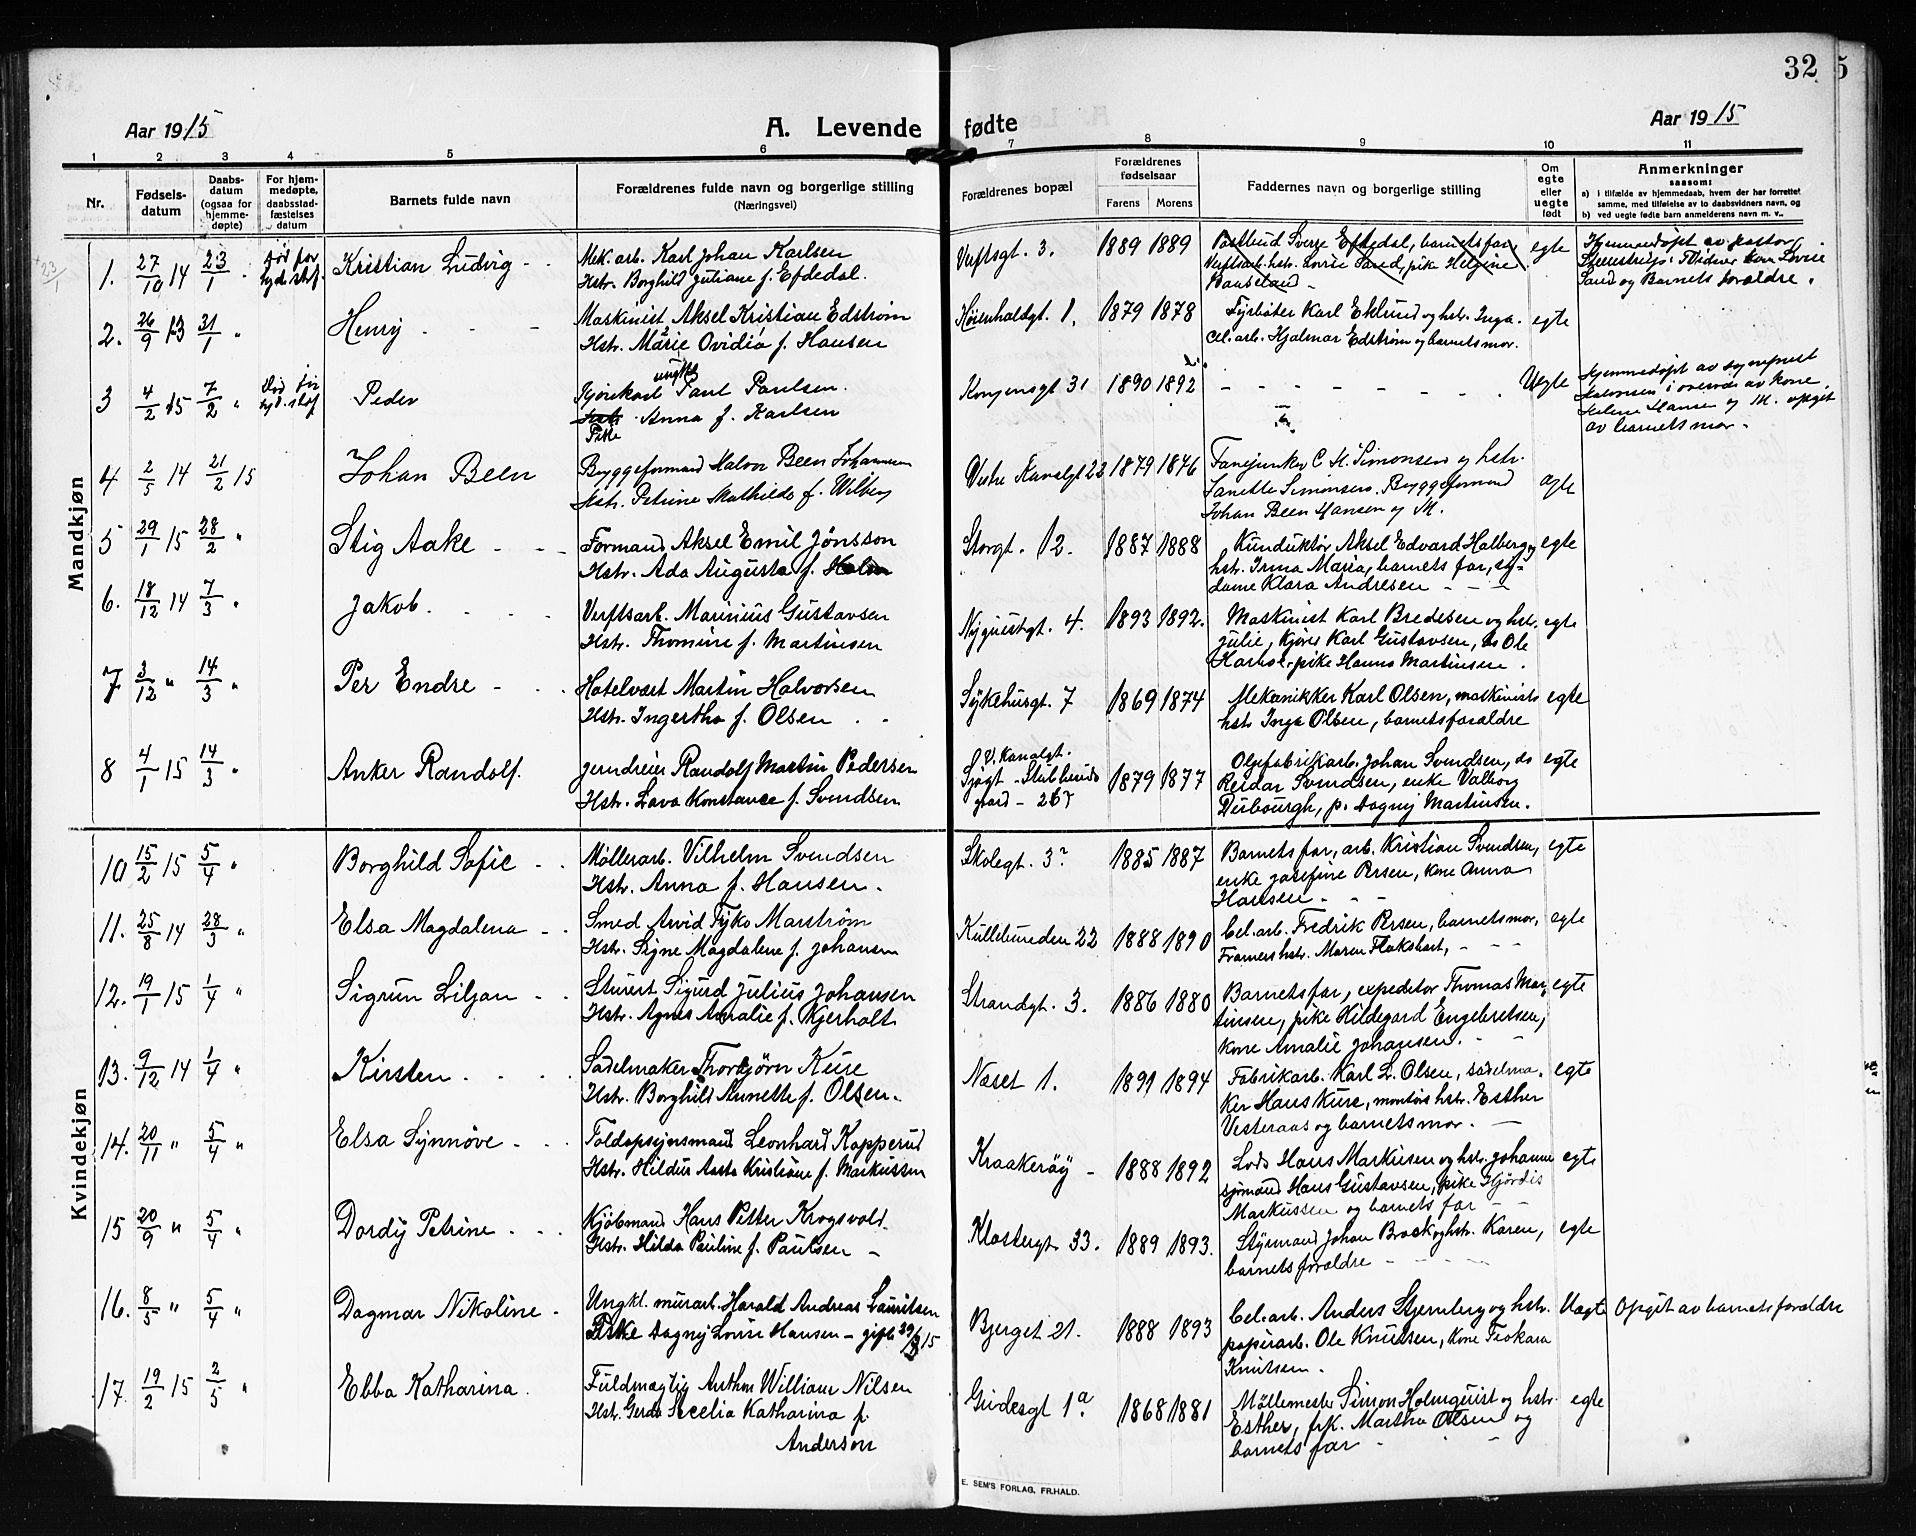 32
5
Aar 1915
A. Levende fødte
Aar 1915
1 2 3 4 5 6 7 8 9 10 11
Nr.
Fødsels-
datum
Daabs-
datum
(ogsaa for
hjemme-
døpte)
For hjem-
medøpte,
daabsstad-
fæstelses
datum
Barnets fulde navn
Forældrenes fulde navn og borgerlige stilling
(Næringsvei)
Forældrenes bopæl
Forældrenes
fødselsaar
Farens Morens
Faddernes navn og borgerlige stilling
Om
egte
eller
uegte
født
Anmerkninger
saasom:
a) i tilfælde av hjemmedaab, hvem der har forrettet
samme, med tilføielse av to daabsvidners navn, og
b) ved uegte fødte barn anmelderens navn m. v..
Mandkjøn
23/1
1. 27/10 14 23/1 " død før Kristian Ludvig - - Mek. arb. Karl Johan Karlsen
Hstr. Borghild Juliane f. Efdedal.
Verftsgt. 3. 1889 1889 Postbud Sverre Eftedal, barnets far,
egte
Hjemmedøpt av pastor
Sand og Barnets forældre.
2. 26/9 13 31/1 " Henry - - - Maskinist Aksel Kristian Edstrøm
Hstr. Marie Ovidia f. Hansen
Høienhaldgt. 1. 1879 1878 Fyrbøter Karl Eklund og hstr. Inga.
cel. arb. Hjalmar Edstrøm og barnets mor.
egte
3 4/2 15 7/2 " Peder ungkl.
Kjørekarl Paul Paulsen.
Hstr. Anna f. Karlsen
Pike
Kongensgt 31 1890 1892 - - - - - Uegte
Hjemmedøpt av
Helene Hansen og M. opgit
av barnets mor.
4 2/5 14 21/2 15 Johan Been Bryggeformand Halvor Been Johannesen
Hstr. Petrine Mathilde f. Wilberg
Vestre Kanalgt 22 1879 1876 Fanejunker C. H. Simonsen og hstr.
Janette Simonsen. Bryggeformand
Johan Been Hansen og M.
egte
5 29/1 15 28/2 " Stig Aake - - Formand Aksel Emil Jønsson
Hstr. Ada Augusta f. Holm
Storgt. 12. 1887 1888 Kunduktør Aksel Edvard Halberg og
hstr. Irma Maria, barnets far, sy-
dame Klara Andresen - - -
egte
6. 18/12 14 7/3 " Jakob. - - - Verftsarb. Marinius Gustavsen
Hstr. Thomine f. Martinsen
Nyquistgt. 4. 1893 1892. Maskinist Karl Bredesen og hstr.
Julie, Kjører Karl Gustavsen, do Ole
pike Hanna Martinsen.
egte
7 3/12 " 14/3 " Per Endre - - - Hotelvært Martin Halvorsen
Hstr. Ingertha f. Olsen . .
Sykehusgt. 7 1869 1874 Mekanikker Karl Olsen, maskinists
hstr Inga Olsen, barnets forældre
egte
8 4/1 15 14/3 " Anker Randolf. Jerndreier Randolf Martin Pedersen
Hstr. Lava Konstance f. Svendsen
V. Kanalgt.
Sjøgt -
gaard - 26 1879 1877 Oljefabrikarb. Johan Svendsen, do
Reidar Svendsen, enke Valborg
Duboürgh, p. Dagny Martinsen.
egte
Kvindekjøn
10 15/2 15 5/4 " Borghild Sofie - - Møllerarb. Vilhelm Svendsen
Hstr. Anna f. Hansen.
Skolegt. 3 1885 1887 Barnets far, arb. Kristian Svendsen,
enke Josefine Persen, kone Anna
Hansen - - -
egte
11. 25/8 14 28/3 " Elsa Magdalena - - Smed Arvid Tyko Marstrøm
Hstr. Signe Magdalene f. Johansen
Kullebunden 22 1888 1890 Cel. arb. Fredrik Persen, barnets mor,
hstr. Maren Flakshart, - - -
egte
12. 19/1 15 1/4 " Sigrun Liljan - - Stuert Sigurd Julius Johansen
Hstr. Agnes Amalie f. Kjerholt
Strandgt. 3. 1886 1880 Barnets far, expeditør Thomas Mar-
tinsen, pike Hildegard Engebretsen,
kone Amalie Johansen. - -
egte
13. 9/12 14 1/4 " Kirsten . . . . Sadelmaker Thorbjørn Kure
Hstr. Borghild Annette f. Olsen.
Næset 1. 1891 1894 Fabrikarb. Karl L. Olsen, sadelma-
ker Hans Kure, montørs hstr. Esther
Vesteraas og barnets mor. -
egte
14. 20/11 " 5/4 " Elsa Synnøve - - - Toldopsynsmand Leonhard Kopperud
Hstr. Hildur Aasta Kristiane f. Markussen
Kraakerøy - 1888 1892 Lods Hans Markusen og hstr. Johanne
sjømand Hans Gustavsen, pike Hjørdis
Markussen og barnets far - -
egte
15 20/9 " 5/4 " Dordy Petrine . . . Kjøbmand Hans Petter Krogsvold.
Hstr. Hilda Pauline f. Paulsen -
Klostergt 33. 1889 1893. Styrmand Johan Brock og hstr. Karen,
barnets forældre - - - -
egte
16. 8/5 " 5/4 " Dagmar Nikoline - Ungkl. murarb. Harald Andreas Lauritsen
Pike Dagny Lovise Hansen - gifte 15
Bjerget 21. 1888 1893 Cel. arb. Anders Stjernberg og hstr.
papirarb. Ole Knutsen, kone Teokara
Knutsen -
Uegte Opgit av barnets forældre
17. 19/2 15 2/5 " Ebba Katharina. Fuldmægtig Anthon William Nilsen
Hstr. Gerda Secelia Katharina f.
Anderson
Gudesgt 1a. 1868 1881 Møllemester Simon Holmquist og hstr.
Esther, frk. Martha Olsen og
barnets far - -
egte
E. SEM'S FORLAG, FR.HALD.